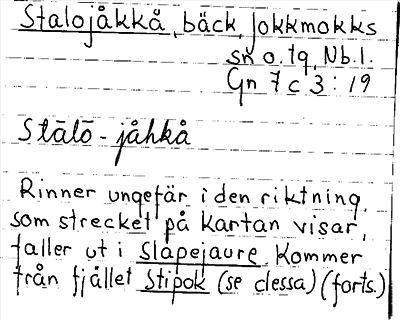 Stalojåkkå, bäck, Jokkmokks
sn o. tg, Nb.l.
Gn 7 c 3 : 19
Stālō - jåhkå
Rinner ungefär i den riktning,
som strecket på kartan visar,
faller ut i Slapejaure. Kommer
från fjället Stipok (se dessa) (forts.)